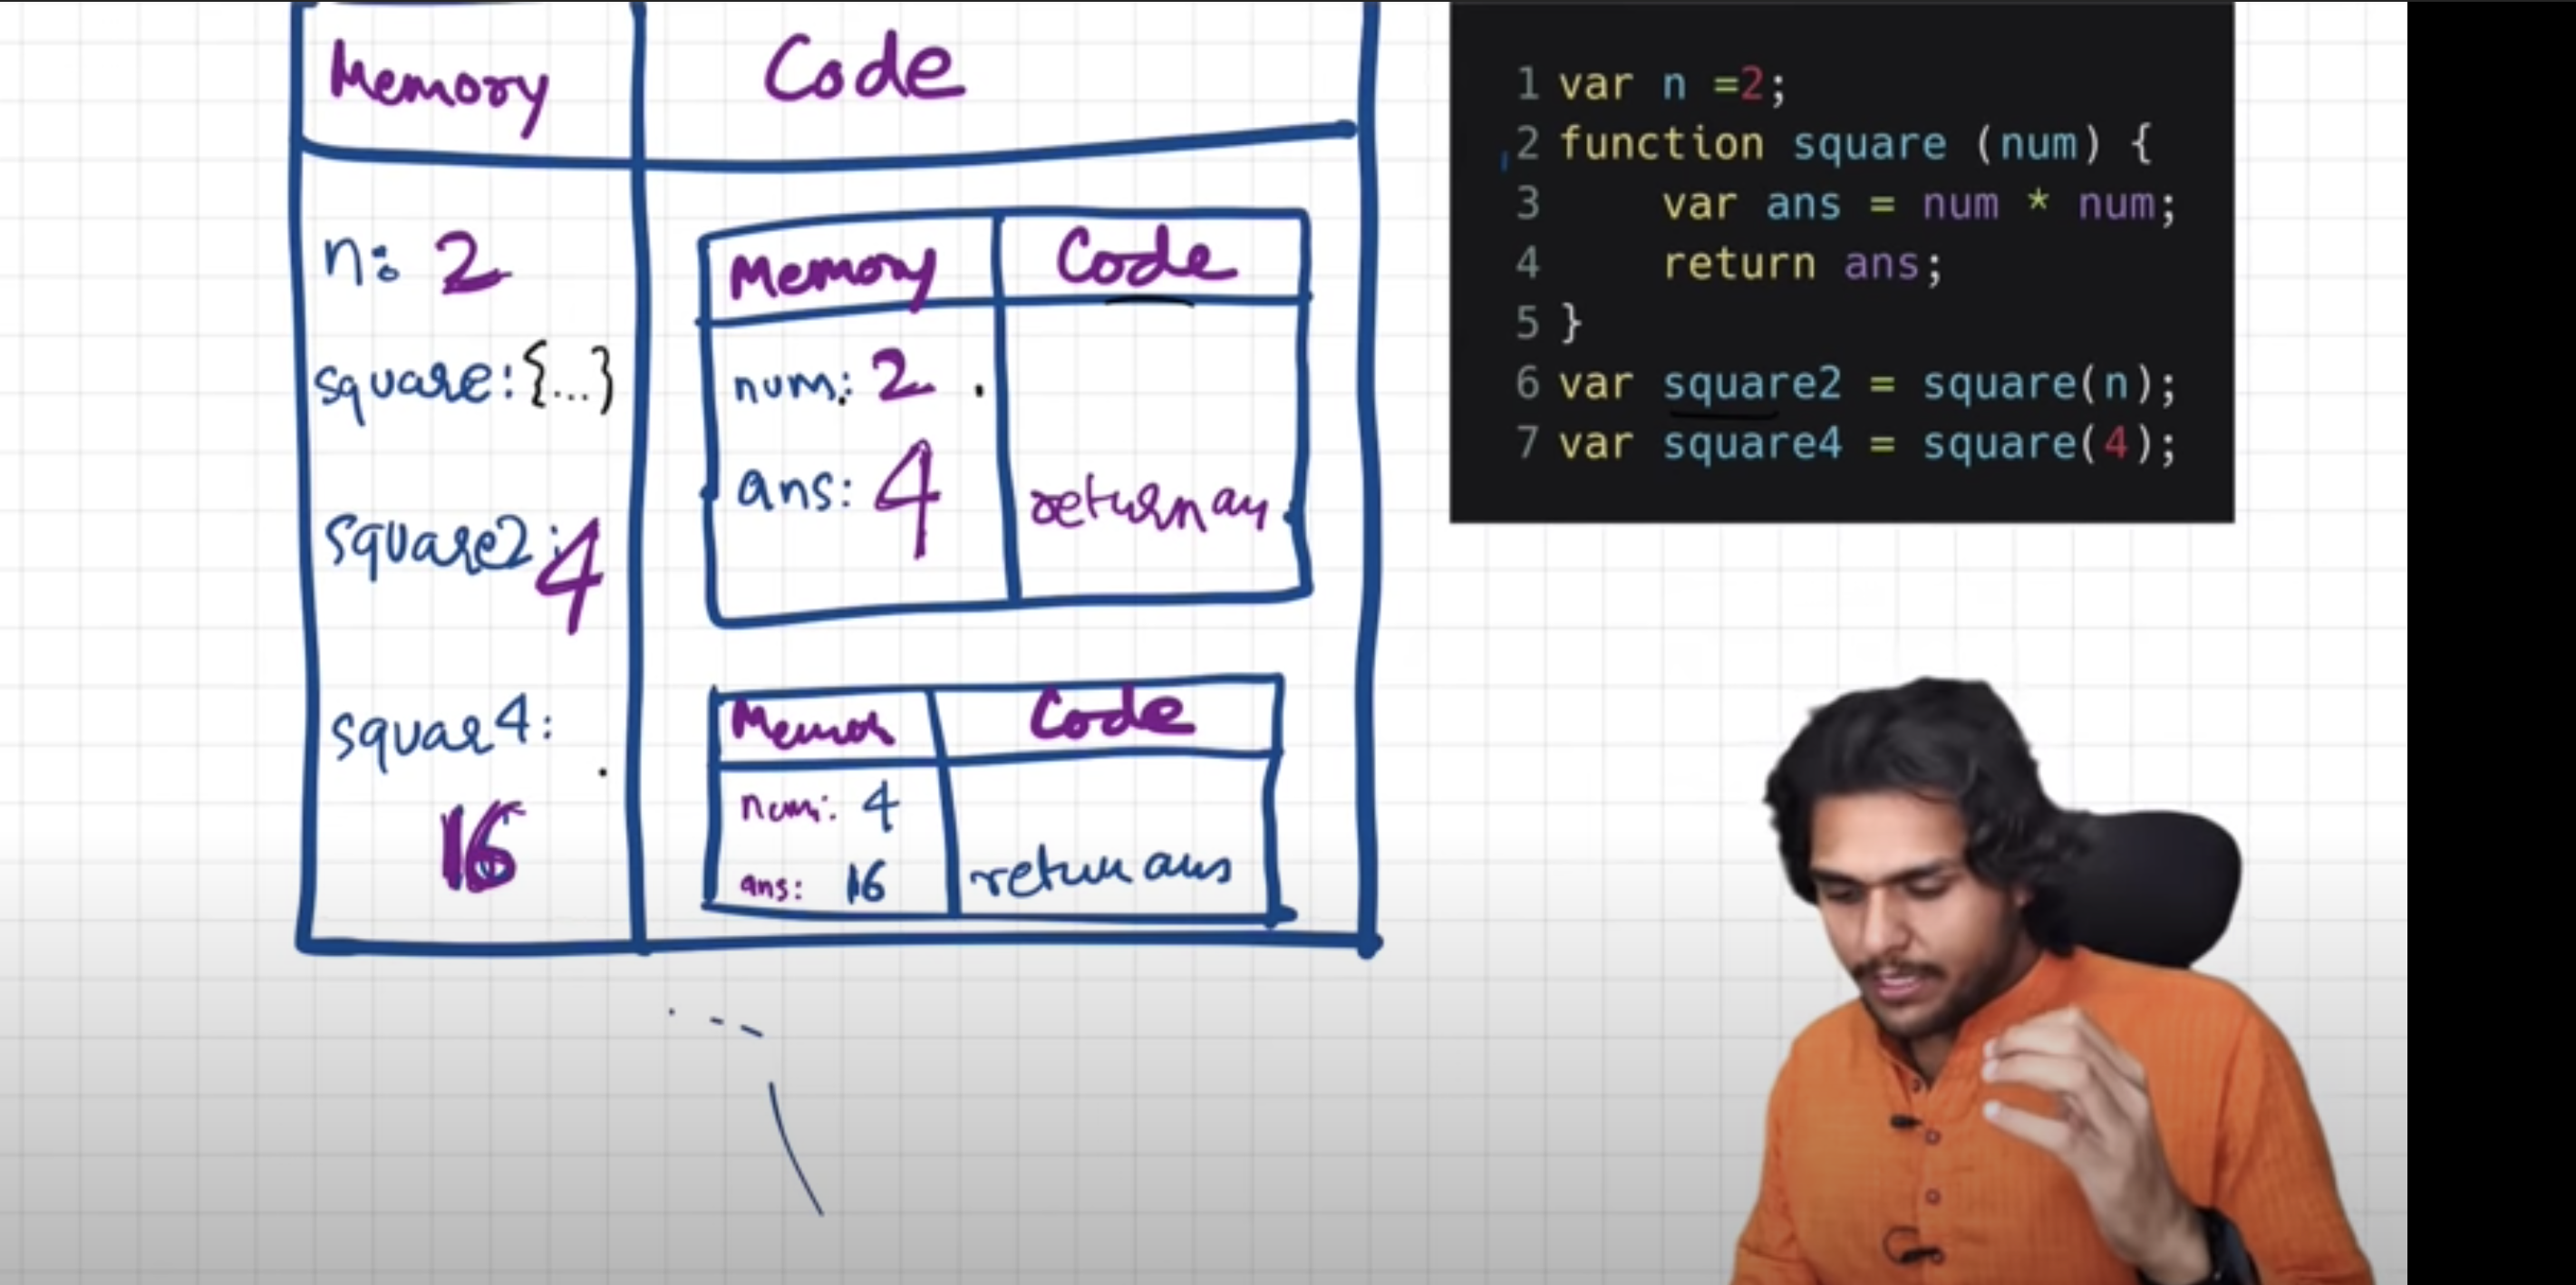 Memory Code
n: 2
square: {...}
square2: 4
squar4:
16
Memory Code
num: 2
ans: 4
return an
Memor Code
num: 4
ans: 16
return ans
1 var n =2;
2 function square (num) {
3 var ans = num * num;
4 return ans;
5 }
6 var square2 = square(n);
7 var square4 = square(4);